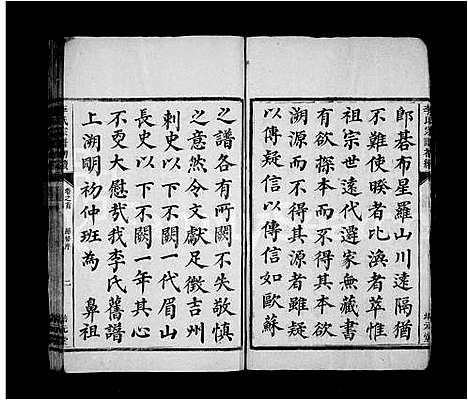 郎碁布星羅山川遠隔猶
不難使暌者比渙者萃惟
祖宗世遠代遷家無藏書
有欲探本而不得其本欲
溯源而不得其源者雖疑
以傳疑信以傳信如歐蘇
之譜各有所闕不失敬慎
之意然令文獻足徵吉州
刺史以下不闕一代眉山
長史以下不闕一年其心
不更大慰哉我李氏舊譜
上溯明初仲班為鼻祖
卷之首
二